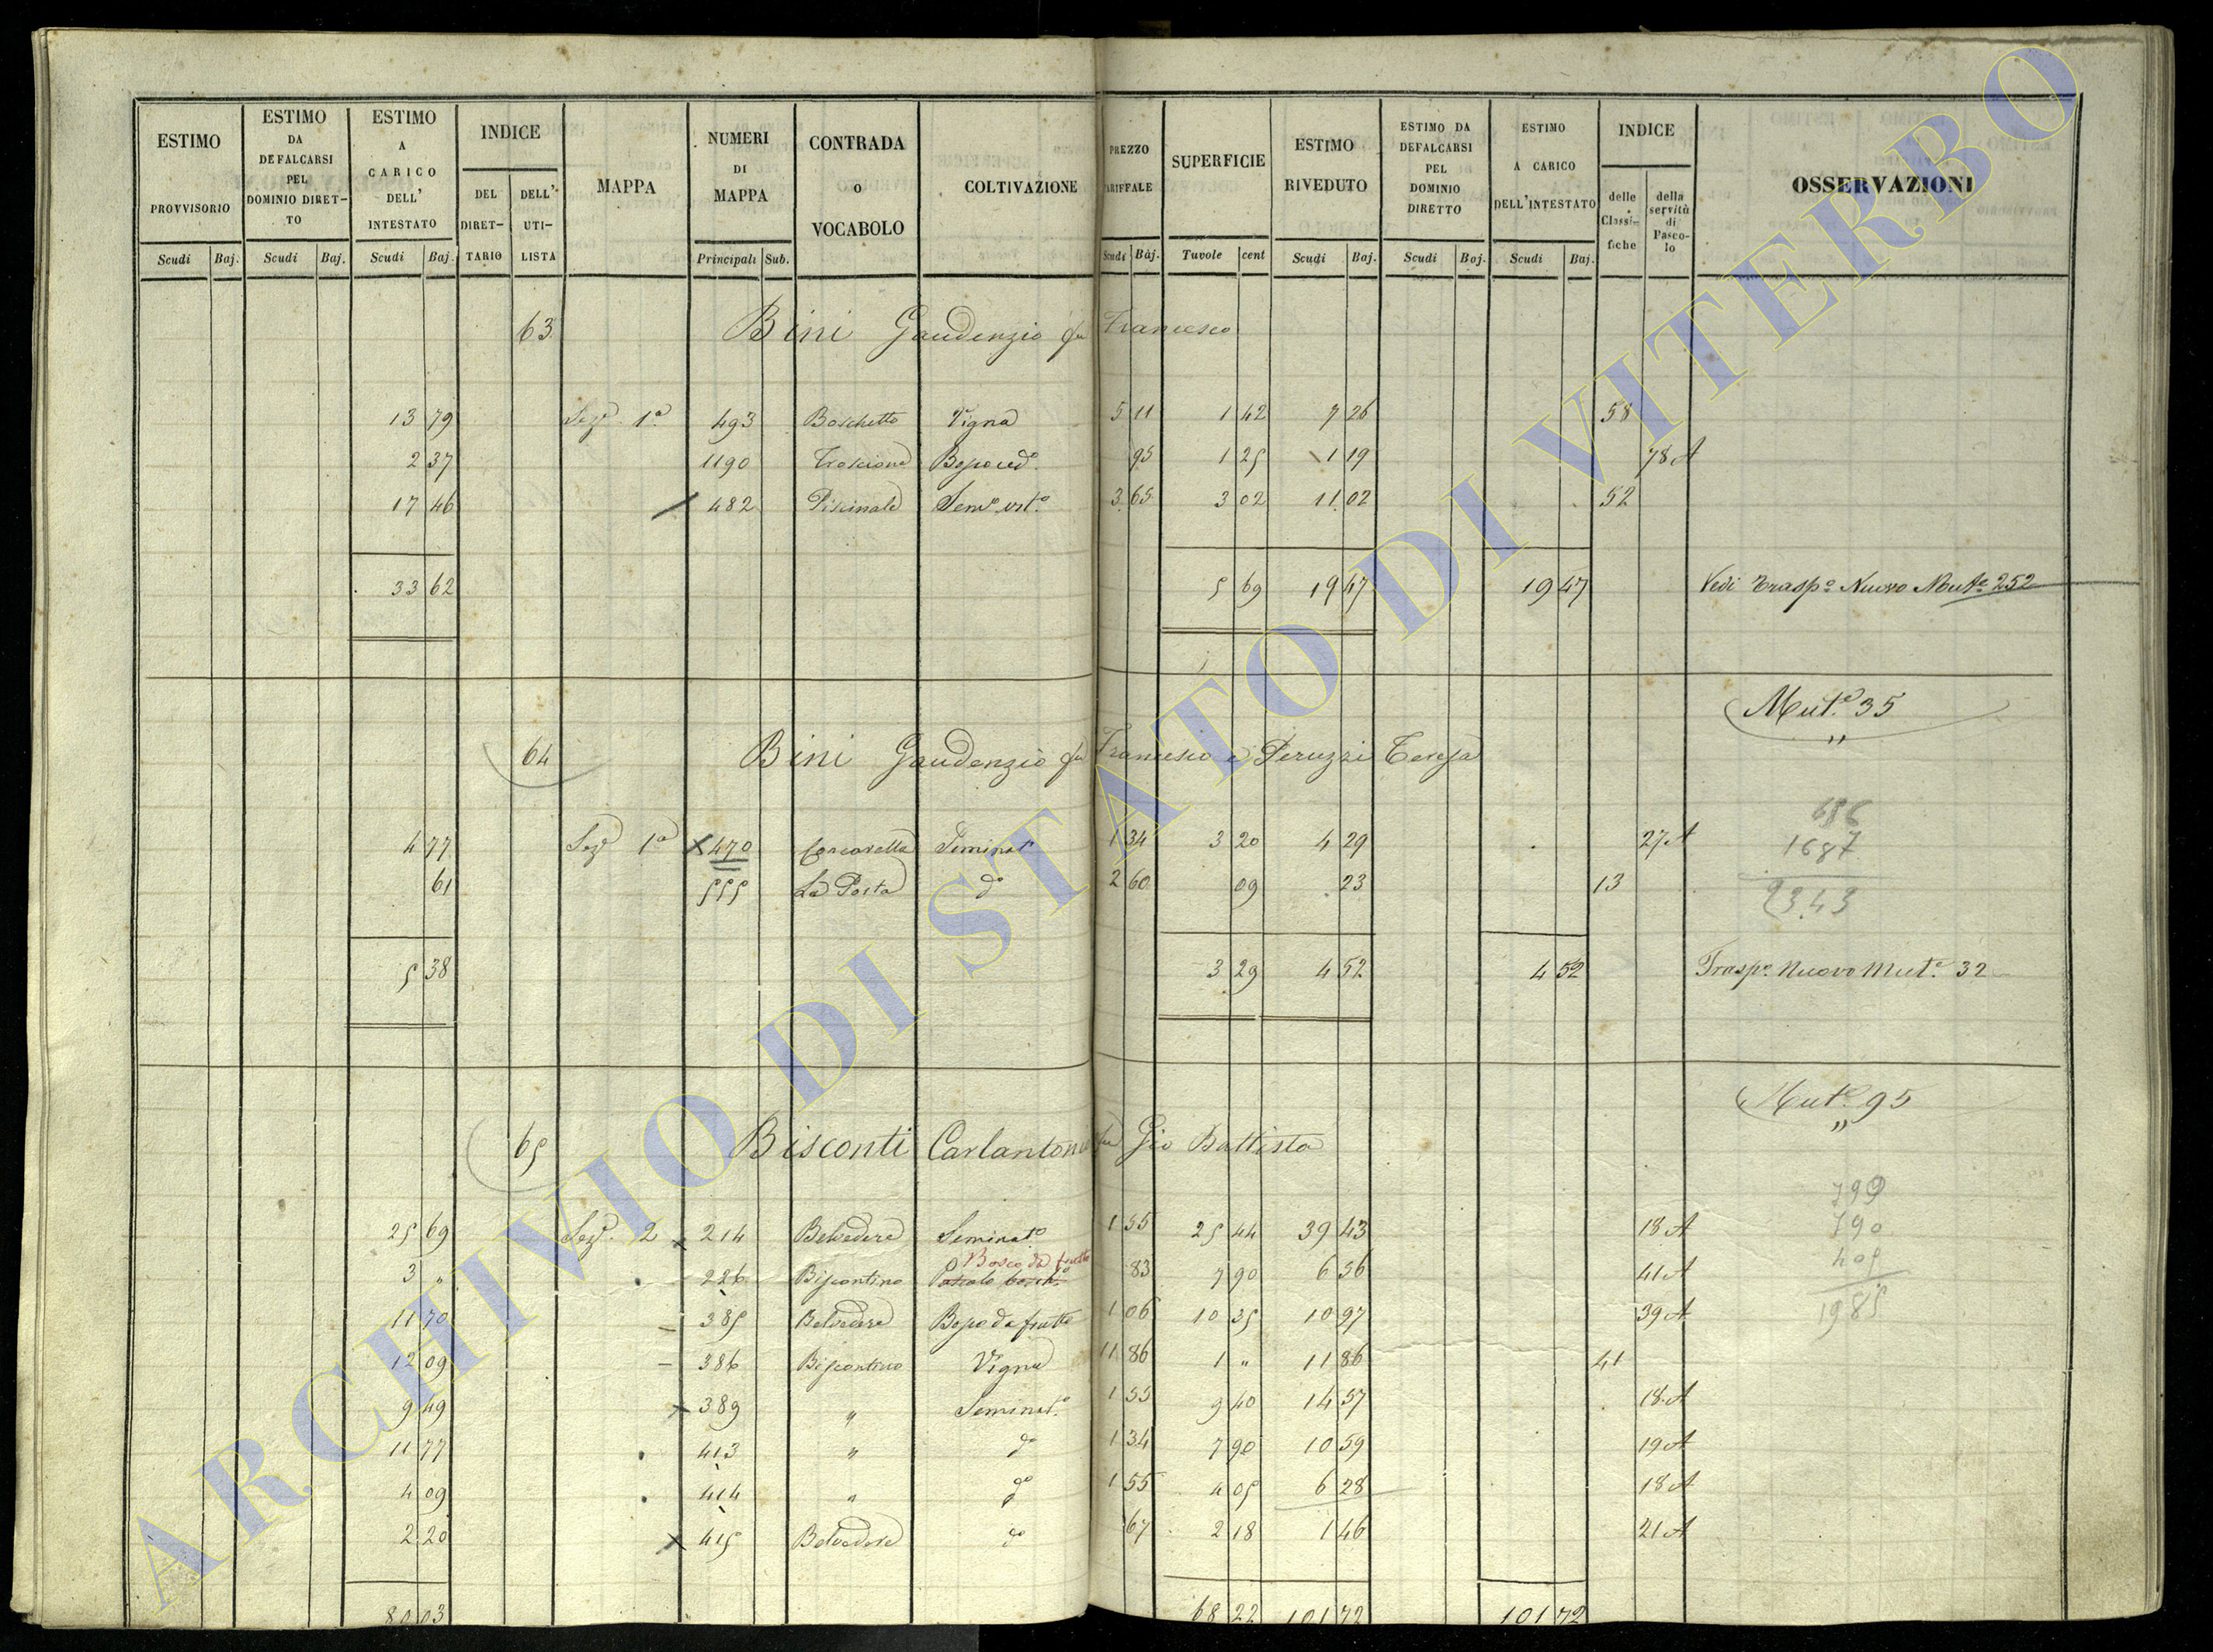 ESTIMO PROVVISORIO
ESTIMO DA DEFALCARSI PEL DOMINIO DIRET-TO
ESTIMO A CARICO DELL' INTESTATO
INDICE
DEL DIRET-TARIO
DELL' UTI-LISTA
MAPPA
NUMERI DI MAPPA
CONTRADA o VOCABOLO
COLTIVAZIONE
PREZZO TARIFFALE
SUPERFICIE
ESTIMO RIVEDUTO
ESTIMO DA DEFALCARSI PEL DOMINIO DIRETTO
ESTIMO A CARICO DELL'INTESTATO
INDICE
delle Classi-fiche
della servitù di Pasco-lo
OSSERVAZIONI
Scudi Baj. Scudi Baj. Scudi Baj. Principali Sub. Scudi Baj. Tavole cent Scudi Baj. Scudi Baj. Scudi Baj.
63 Bini Gaudenzio fu Francesco
13 79 Sez.e 1.a 493 Boschetto Vigna 5 11 1 42 7 26 58
2 37 1190 Troscione Bosco ced.o 95 1 25 1 19 78 A
17 46 482 Piscinale Sem.o vit.o 3 65 3 02 11 02 52
33 62 5 69 19 47 19 47 Vedi Trasp.o Nuovo Mut.e 252
Mut.e 35
"
64 Bini Gaudenzio fu Francesco e Peruzzi Teresa
686
4 77 Sez.e 1.a 470 Seminat.o 1 34 3 20 4 29 27 A 1687
61 555 La Posta d.o 2 60 09 23 13
2343
5 38 3 29 4 52 4 52 Trasp.o Nuovo Mut.e 32
Mut.e 95
"
65 Bisconti Carlantonio fu Gio Battista
799
25 69 Sez.e 2 214 Belvedere Seminat.o 1 55 25 44 39 43 18 A 790
Bosco da frutto
3 " 226 Biscontino Pascolo bosch.o 83 7 90 6 56 41 A 405
11 70 385 Belvedere Bosco da frutto 1 06 10 35 10 97 39 A 1985
12 09 386 Biscontino Vigna 11 86 1 " 11 86 41
9 49 389 " Seminat.o 1 55 9 40 14 57 18 A
11 77 413 " d.o 1 34 7 90 10 59 19 A
4 09 414 " d.o 1 55 4 05 6 28 18 A
2 20 415 Belvedere d.o 67 2 18 1 46 21 A
80 03 68 22 101 72 101 72
ARCHIVIO DI STATO DI VITERBO